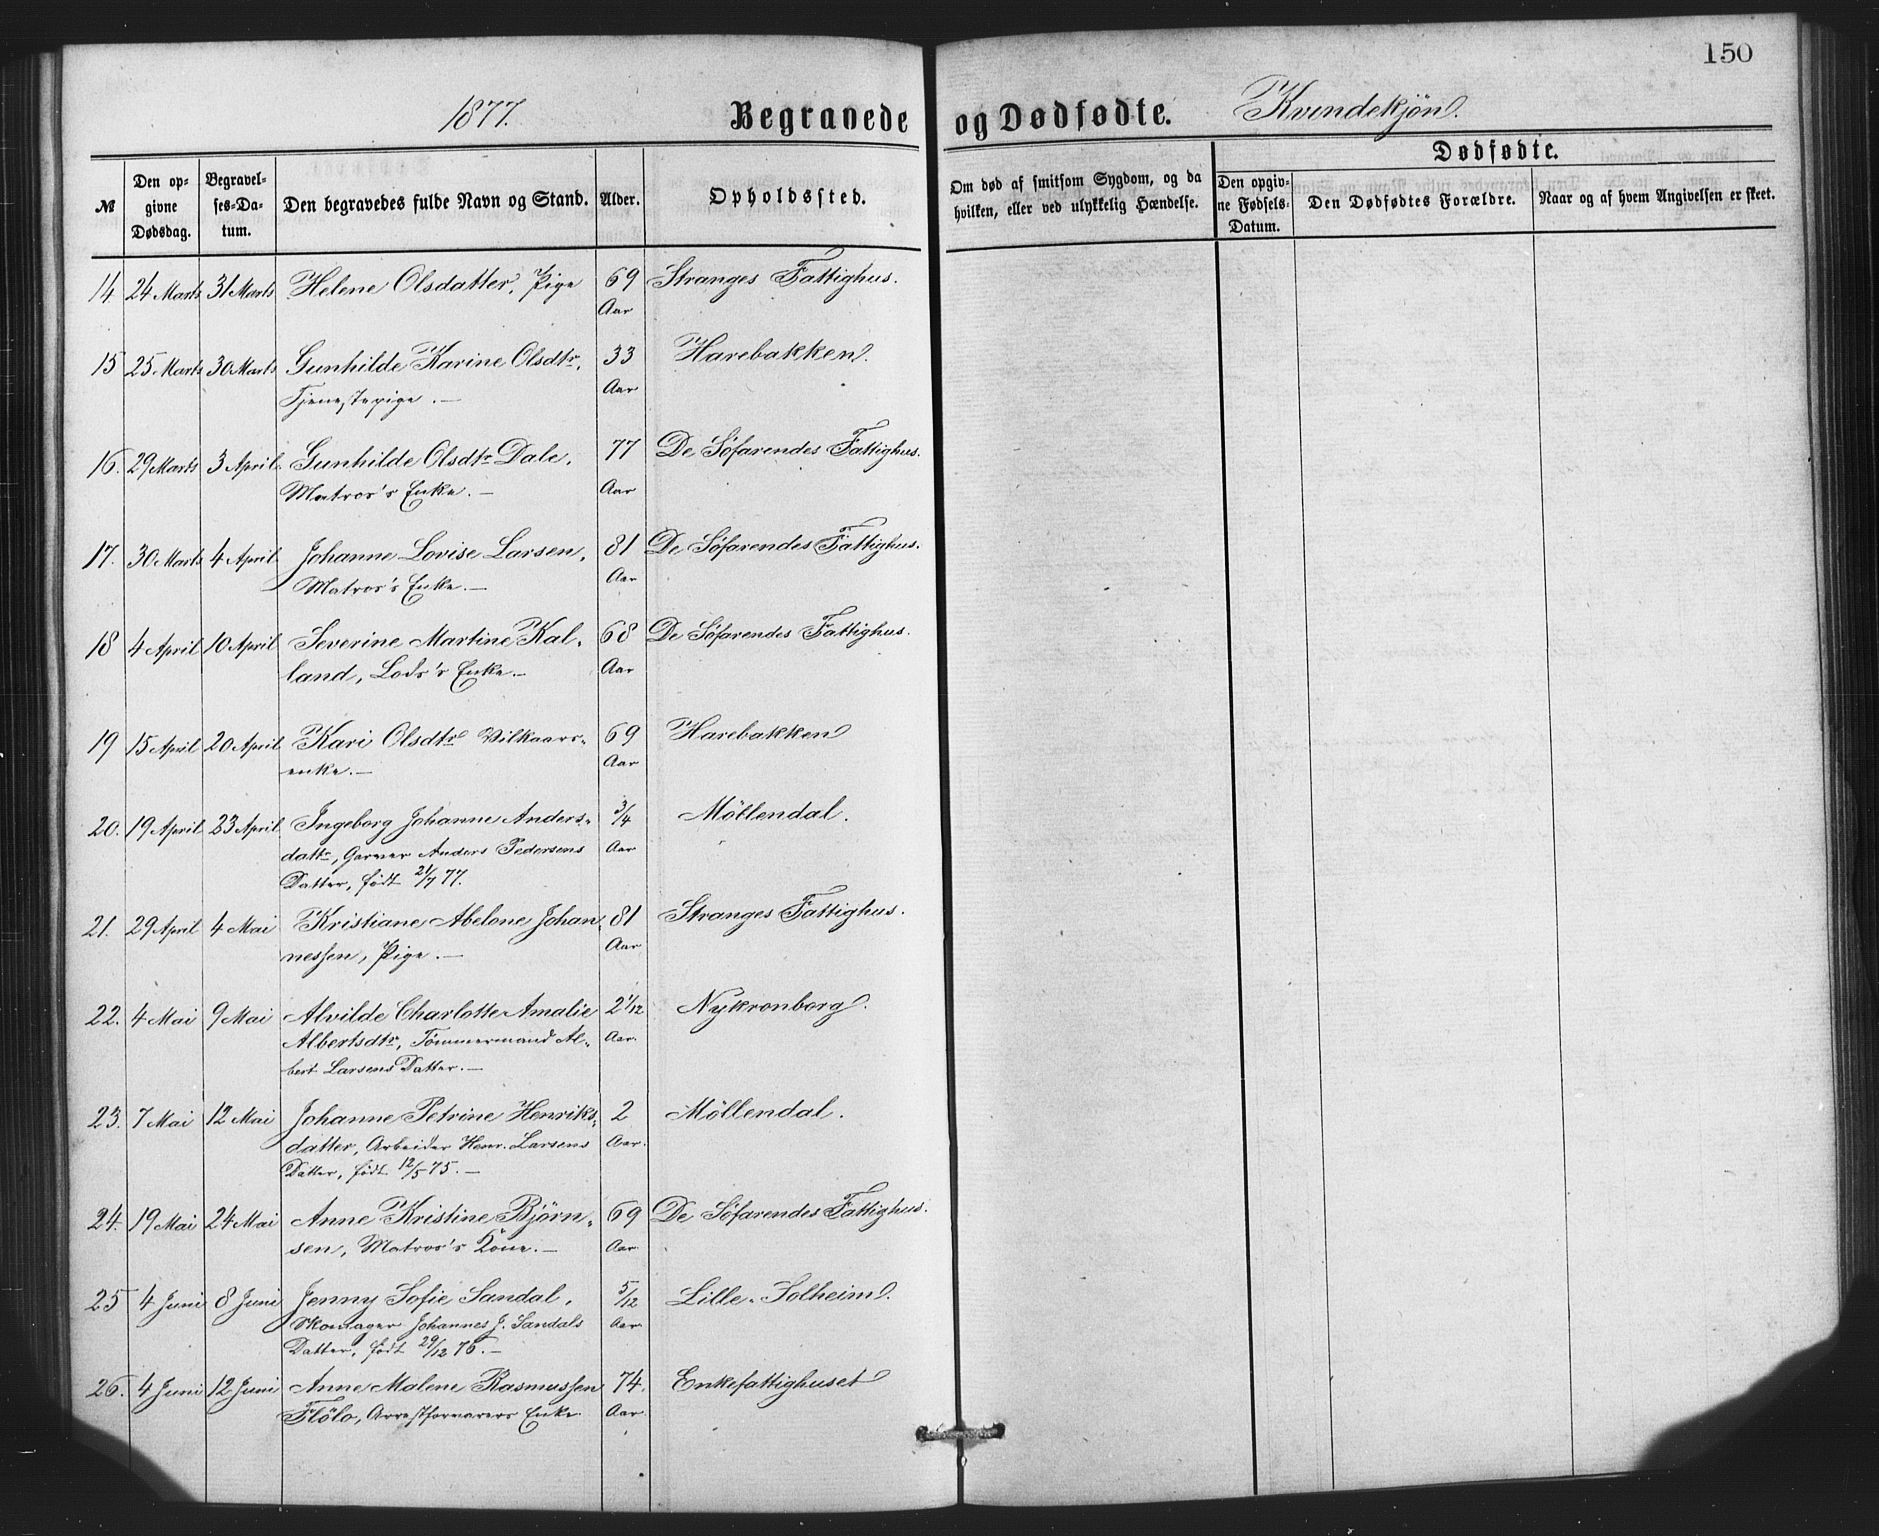 150
1877. Begravede og Dødfødte. Kvindekjøn.
Dødfødte.
№ Den opgivne Dødsdag. Begravelses-Datum. Den begravedes fulde Navn og Stand. Alder. Opholdssted. Om død af smitsom Sygdom, og da hvilken, eller ved ulykkelig Hændelse. Den opgivne Fødsels-Datum. Den Dødfødtes Forældre. Naar og af hvem Angivelsen er skeet.
14 24 Marts 31 Marts Helene Olsdatter, Pige 69 Stranges Fattighus.
Aar
15 25 Marts 30 Marts Gunhilde Karine Olsdtr, 33 Harebakken.
Tjenestepige.— Aar
16. 29 Marts 3 April Gunhilde Olsdtr Dale, 77 De Söfarendes Fattighus.
Matros's Enke.— Aar
17. 30 Marts 4 April Johanne Lovise Larsen, 81 De Söfarendes Fattighus.
Matros's Enke.— Aar
18 4 April 10 April Severine Martine Kal- 68 De Söfarendes Fattighus.
land, Lods's Enke.— Aar
19 15 April 20 April Kari Olsdtr Vilkaars- 69 Harebakken
enke.— Aar
20. 19 April 23 April Ingeborg Johanne Anders- 3/4 Möllendal.
datter, Garver Anders Pedersens Aar
Datter, født 21/7 77.
21. 29 April 4 Mai Kristiane Abelone Johan- 81 Stranges Fattighus.
nessen, Pige.— Aar
22. 4 Mai 9 Mai Alvilde Charlotte Amalie 2 1/12 Nykronborg.
Albertsdtr, Tömmermand Al- Aar.
bert Larsens Datter.—
23. 7 Mai 12 Mai Johanne Petrine Henriks- 2 Möllendal.
datter, Arbeider Henr. Larsens Aar.
Datter, født 12/5 75.—
24. 19 Mai 24 Mai Anne Kristine Björn- 69 De Söfarendes Fattighus.
sen, Matros's Kone.— Aar
25 4 Juni 8 Juni Jenny Sofie Sandal, 5/12 Lille-Solheim.
Skomager Johannes J. Sandals Aar
Datter, født 29/12 76.—
26. 4 Juni 12 Juni Anne Malene Rasmussen 74 Enkefattighuset
Flölo, Arrestforvarers Enke. Aar